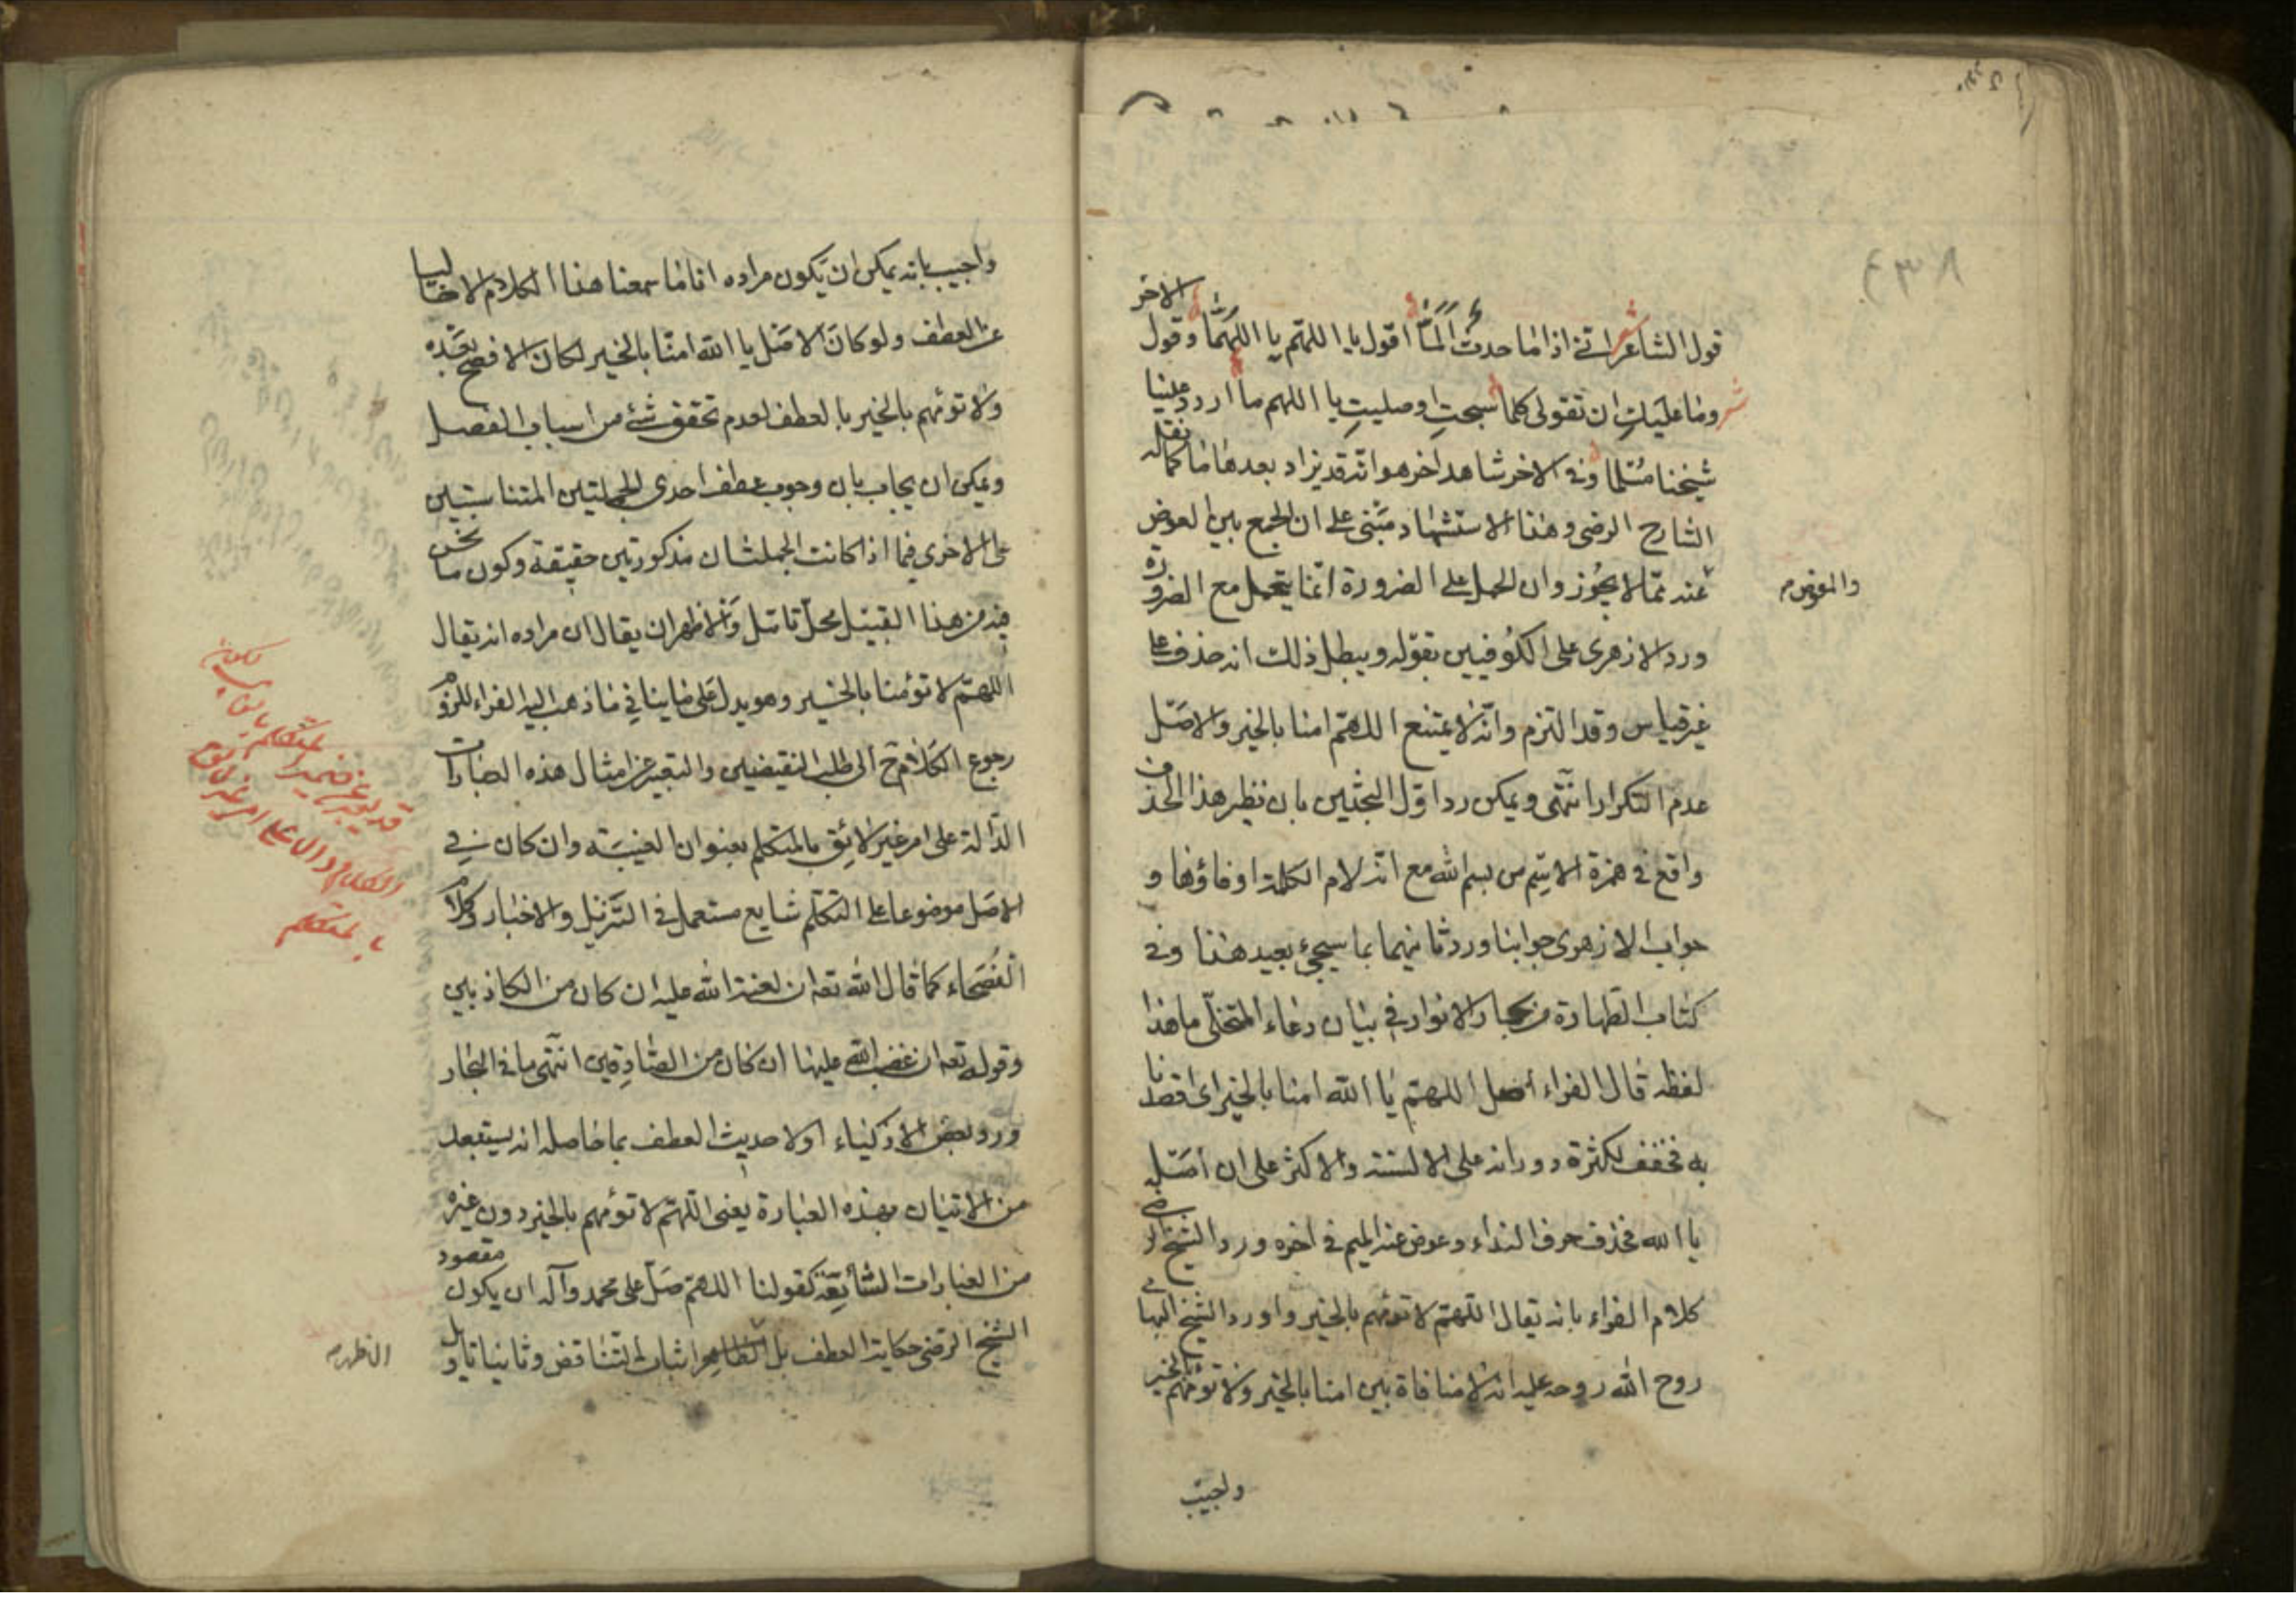 قول الشاعر انى اذا ما حدث ألمّا اقول يا اللهم يا اللهمّا وقول الاخر
وما عليك ان تقولى كلما سبحت او صليت يا اللهم ما اردد علينا
شيخنا مسلما وفى الاخر شاهد اخر هو انه قد يزاد بعدها ما كما نقله
الشارح الرضى وهذا الاستشهاد مبنى على ان الجمع بين العوض
والمعوض
عنه مما لا يجوز وان الحمل على الضرورة انما يتحمل مع الضرورة
ورد الازهرى على الكوفيين بقوله ويبطل ذلك انه حذف على
غير قياس وقد التزم وانه لا يمتنع اللهم امنا بالخير والاصل
عدم التكرار انتهى ويمكن رد اول البحثين بان نظير هذا الحذف
واقع فى همزة الاسم من بسم الله مع انه لام الكلمة او فاؤها و
جواب الازهرى جوابنا ورد ثانيهما بما سيجئ بعيد هذا وفى
كتاب الطهارة من بحار الانوار فى بيان دعاء المتخلى ما هذا
لفظه قال الفراء اصل اللهم يا الله امنا بالخير اى اقصدنا
به فخفف لكثرة دورانه على الالسنة والاكثر على ان اصله
يا الله فحذف حرف النداء وعوض عنه الميم فى اخره ورد الشيخ الرضى
كلام الفراء بانه يقال اللهم لا تؤمهم بالخير واورد الشيخ البهائى
روح الله روحه عليه انه لا منافاة بين امنا بالخير ولا تؤمهم بالخير
واجيب
واجيب بانه يمكن ان يكون مراده انا ما سمعنا هذا الكلام الا خاليا
عن العطف ولو كان الاصل يا الله امنا بالخير لكان الافصح بعده
ولا تؤمهم بالخير بالعطف لعدم تحقق شئ من اسباب الفصل
ويمكن ان يجاب بان وجوب عطف احدى الجملتين المتناسبتين
على الاخرى فيما اذا كانت الجملتان مذكورتين حقيقة وكون ما نحن
فيه من هذا القبيل محل تامل والاظهر ان يقال ان مراده انه يقال
اللهم لا تؤمنا بالخير وهو يدل على ما ينافى ما ذهب اليه الفراء للزوم
رجوع الكلام ح الى طلب النقيضين والتعبير عن امثال هذه العبارات
الدالة على امر غير لائق بالمتكلم بعنوان الغيبة وان كان فى
الاصل موضوعا على التكلم شايع مستعمل فى التنزيل والاخبار وكلام
الفصحاء كما قال الله تعه ان لعنة الله عليه ان كان من الكاذبين
وقوله تعه ان غضب الله عليها ان كان من الصادقين انتهى ما فى البحار
ورد بعض الاذكياء اولا حديث العطف بما حاصله انه يستبعد
من الاتيان بهذه العبارة يعنى اللهم لا تؤمهم بالخير دون غيره
من العبارات الشايعة كقولنا اللهم صل على محمد وآله ان يكون مقصود
الشيخ الرضى حكاية العطف بل الظاهر اثبات التناقض وثانيا تاويل
الظهر
بالمتكلم